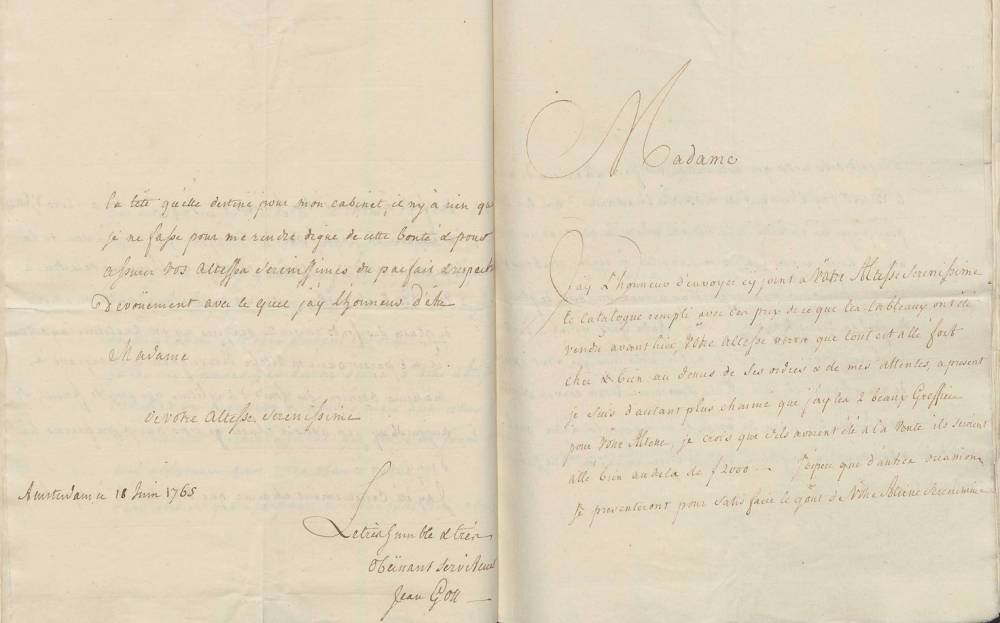 la tête qu'elle destine pour mon cabinet, il n'y à rien que
je ne fasse pour me rendre digne de cette bonté & pour
assurer vos Altesses Serenissimes du parfait & respect
Devoüement avec le quel j'ay l'honneur d'être
Madame
de votre Altesse Serenissime
Amsterdam 18 Juin 1765
Le très humble & très
Obëissant serviteur
Jean Goll
Madame
J'ay L'honneur d'envoyer cy joint a Vôtre Altesse Serenissime
le catalogue rempli avec les prix de ce que les tableaux ont été
vendu avant hier, Vôtre Altesse verra que tout est allé fort
cher & bien au de ses ordres & de mes attentes, a present
je suis d'autant plus charmé que j'ay les 2 beaux Greffier
pour Vôtre Altesse, je crois que s'ils avoient été a la Vente ils seroient
allé bien au dela de f 2000 -. J'espere que d'autres occasions
se presenteront pour satisfaire le goût de Vôtre Altesse Serenissime